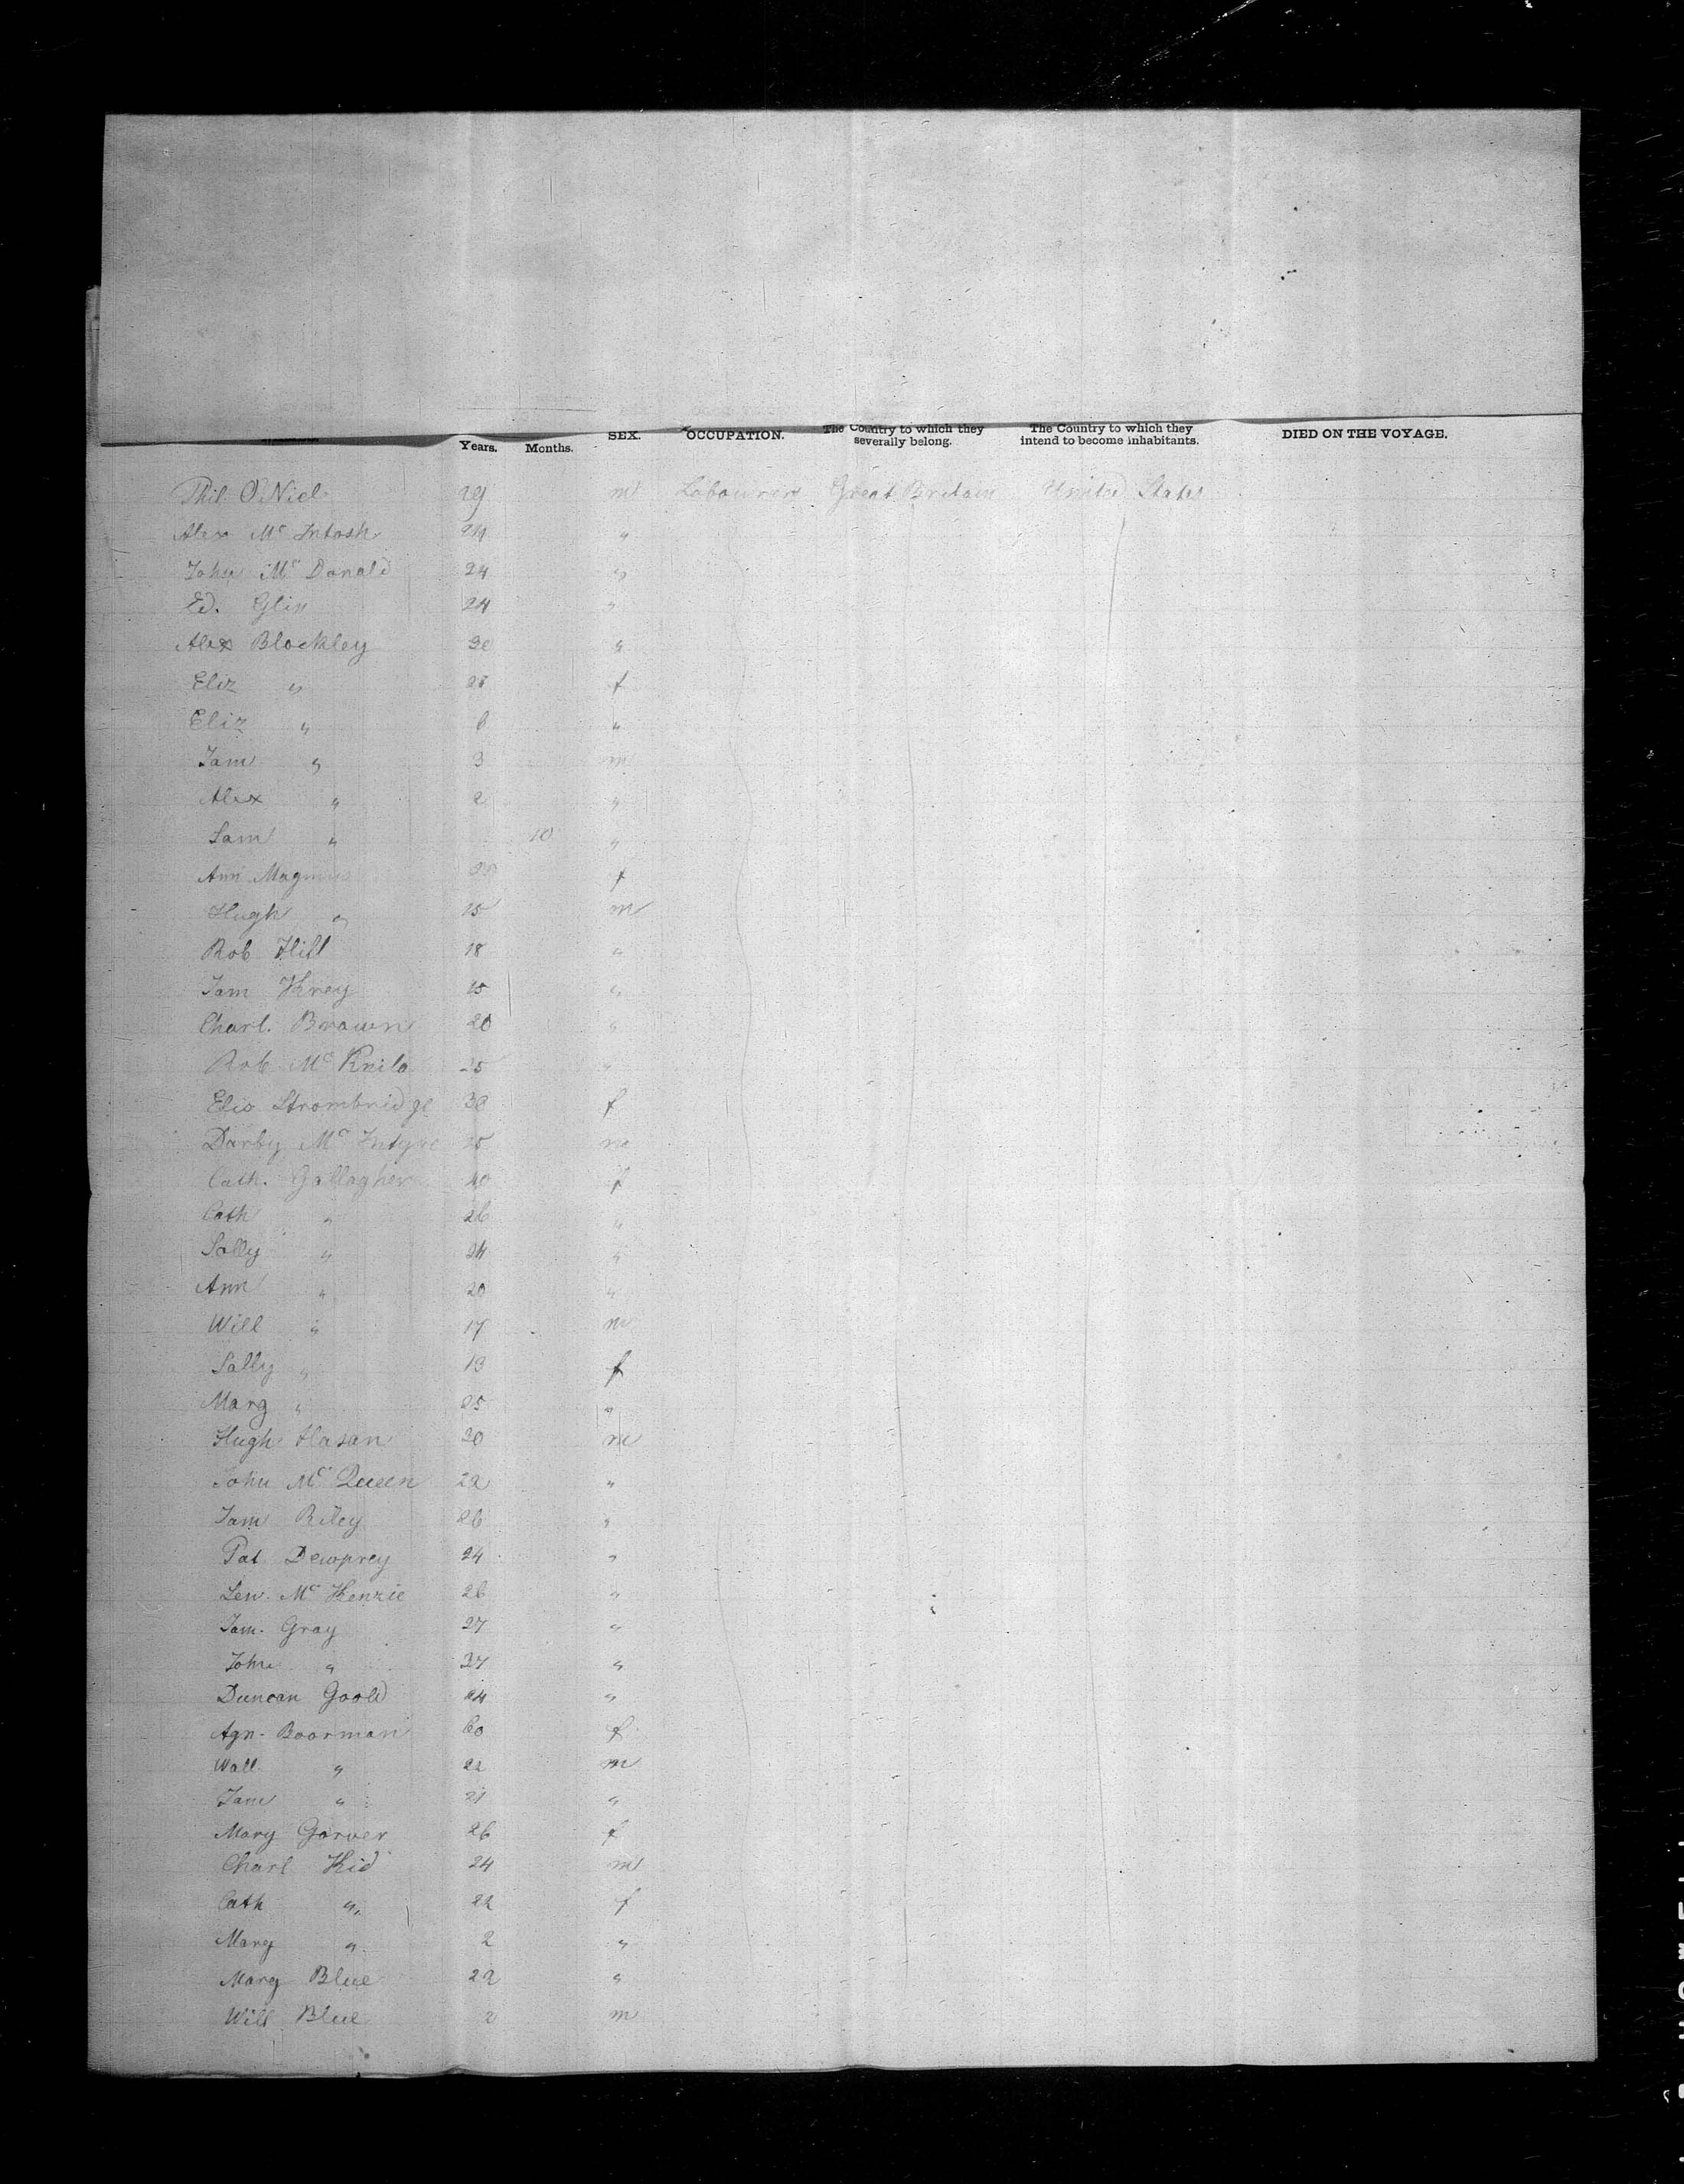 Years. Months. SEX. OCCUPATION. The Country to which they severally belong. The Country to which they intend to become inhabitants. DIED ON THE VOYAGE.
Phil. O'Niel 29 m Labourers Great Britain United States
Alex Mc Intosh 24 "
John Mc Donald 24 "
Ed. Glin 24 "
Alex Blockley 30 "
Eliz " f
Eliz " 6 "
Jam " 3 m
Alex " 2 "
Sam " 10 "
Ann f
Hugh " 15 m
Rob Hill 18 "
Jam Krey 15 "
Charl. Brown 20 "
Rob Mc 25 "
Strombridge f
Darby Mc Intyre 25 m
Cath. Gallagher 40 f
Cath " 26 "
Sally " 24 "
Ann " 20 "
Will " 17 m
Sally " 13 f
Marg " 25 "
Hugh Hasan 20 m
John Mc Queen 22 "
Jam Riley 26 "
Pat Dewprey 24 "
Lew. Mc Kenzie 26 "
Jam. Gray 27 "
John " 37 "
Duncan Goold 24 "
Agn. Boorman 60 f
Wall " 22 m
Jam " 21 "
Mary Garver 26 f
Charl Kid 24 m
Cath " 22 f
Marg " 2 "
Marg Blue 22 "
Will Blue 2 m